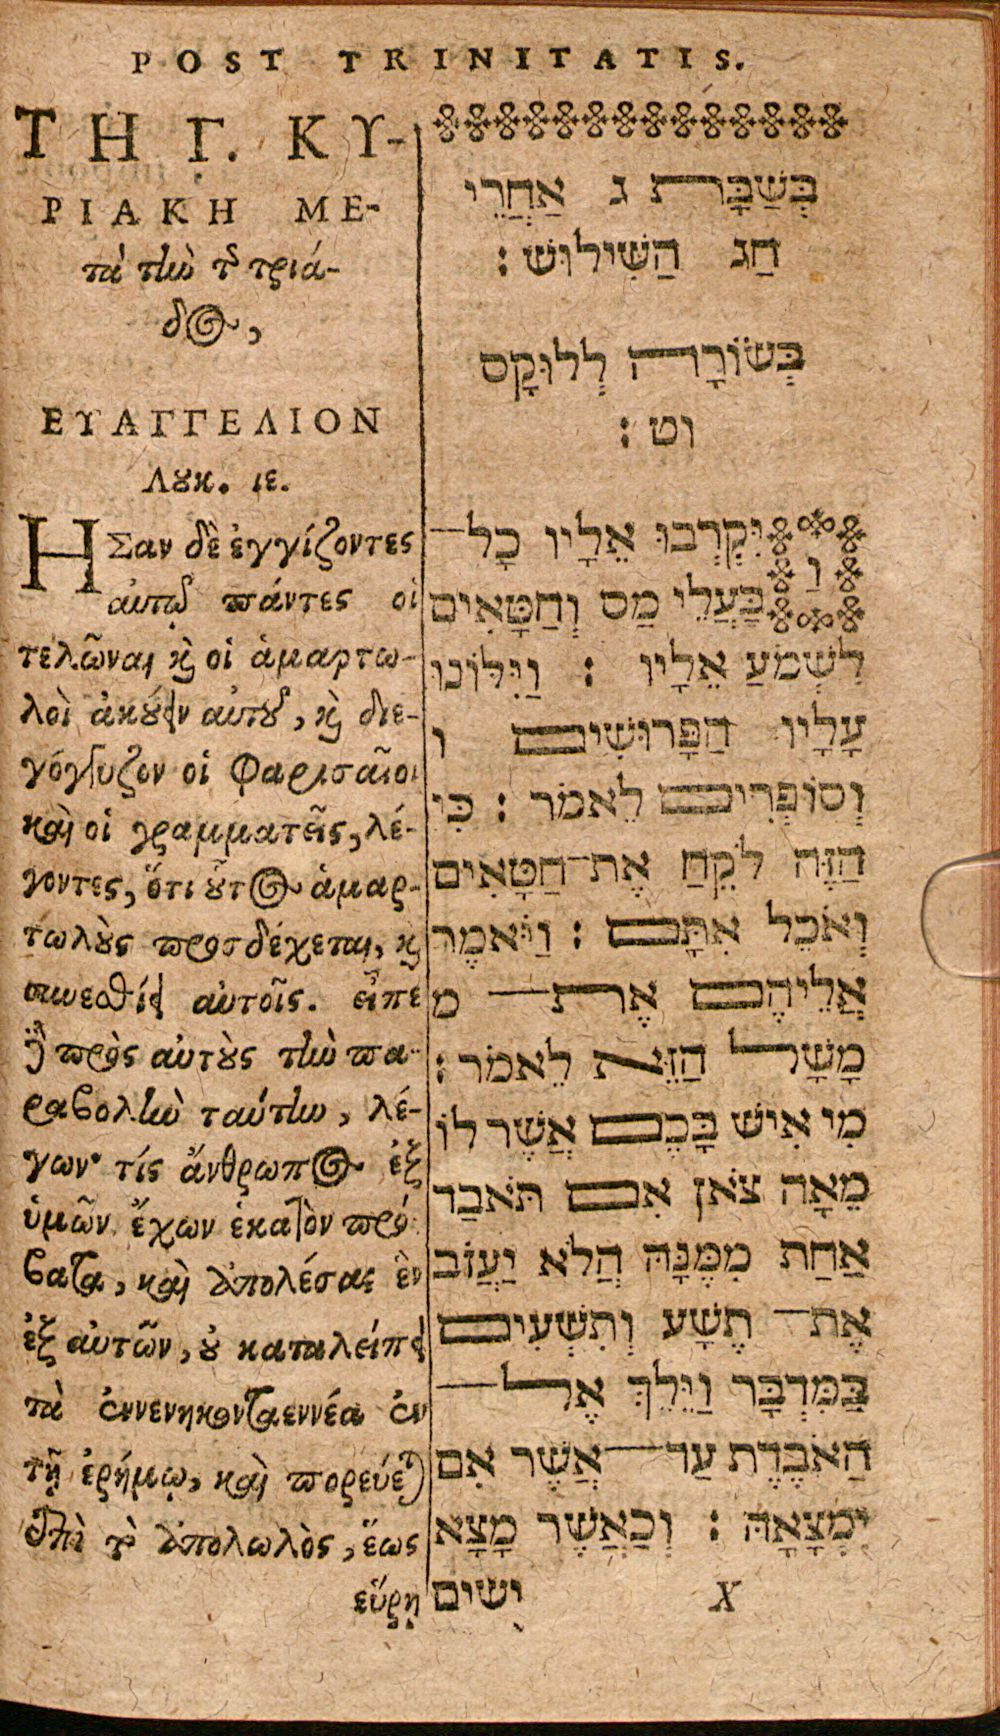 POST TRINITATIS.
ΤΗ Γ. ΚΥ-
ΡΙΑΚΗ ΜΕ-
τὰ τὴν τ͂ τριά-
δος,
ΕΥΑΓΓΕΛΙΟΝ
Λουκ. ιε.
ΗΣαν δὲ ἐγγίζοντες
αὐτῷ πάντες οἱ
τελῶναι καὶ οἱ ἁμαρτω-
λοὶ ἀκούειν αὐτοῦ, καὶ διε-
γόγγυζον οἱ Φαρισαῖοι
καὶ οἱ γραμματεῖς, λέ-
γοντες, ὅτι οὗτος ἁμαρ-
τωλοὺς προσδέχεται, καὶ
συνεσθίει αὐτοῖς. εἶπε
δὲ πρὸς αὐτοὺς τὴν πα-
ραβολὴν ταύτην, λέ-
γων· τίς ἄνθρωπος ἐξ
ὑμῶν ἔχων ἑκατὸν πρό
βατα, καὶ ἀπολέσας ἓν
ἐξ αὐτῶν, οὐ καταλείπει
τὰ ἐννενηκονταεννέα ἐν
τῇ ἐρήμῳ, καὶ πορεύεται
ἐπὶ τὸ ἀπολωλὸς, ἕως
εὕρῃ
בְּשַׁבָּת ג אַחֲרֵי
חַג הַשִׁילוּשׁ :
בְּשׂוֹרָה לְלוּקָס
וט :
וַיִּקְרְבוּ אֵלָיו כָל־
בָּעֲלֵי מַס וְחַטָּאִים
לִשְׁמֹעַ אֵלָיו : וַיִּלּוֹנוּ
עָלָיו הַפָּרוּשִׁים ו
וְסוֹפְרִים לֵאמֹר : כִּי
הַזֶּה לֹקֵחַ אֶת־חַטָּאִים
וְאֹכֵל אִתָּם : וַיֹּאמֶר
אֲלֵיהֶם אֶת־ מ
מָשָׁל הַזֹּאת לֵאמֹר :
מִי אִישׁ בָּכֶם אֲשֶׁר לוֹ
מֵאָה צֹאן אִם תֹּאבַד
אַחַת מִמֶּנָּה הֲלֹא יַעֲזֹב
אֶת־ תֶּשַׁע וְתִשְׁעִים
בַּמִּדְבָּר וַיֵּלֵךְ אֶל־
הַאֹבֶדֶת עַד־אֲשֶׁר אִם
יִמְצָאָהּ : וְכַאֲשֶׁר מָצָא
יָשִׂים
X